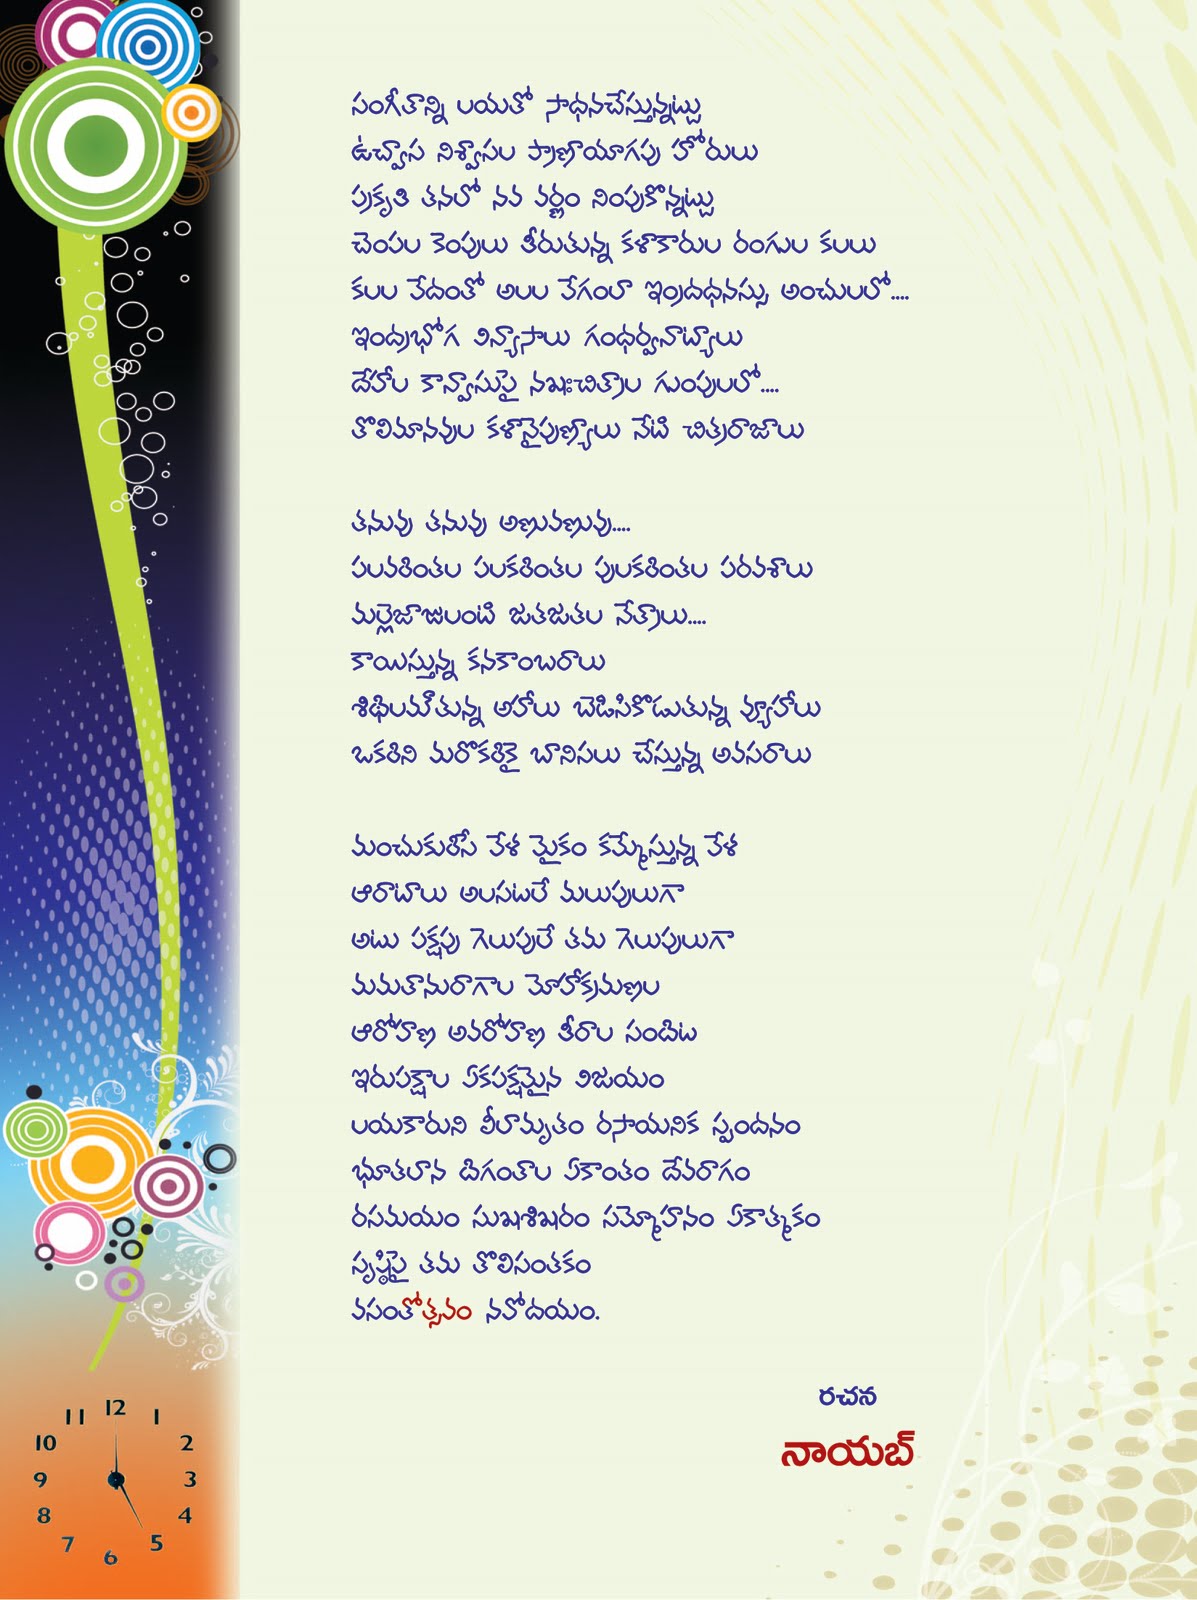 సంగీతాన్ని లయతో సాధనచేస్తున్నట్టు
ఉచ్వాస నిశ్వాసల ప్రాణాయాగపు హోరులు
ప్రకృతి తనలో నవ వర్ణం నింపుకొన్నట్టు
చెంపల కెంపులు తీరుతున్న కళాకారుల రంగుల కలలు
కలల వేదంతో అలల వేగంలా ఇంద్రధనస్సు అంచులలో....
ఇంద్రభోగ విన్యాసాలు గంధర్వనాట్యాలు
దేహాల కాన్వాసుపై నఖఃచిత్రాల గుంపులలో....
తొలిమానవుల కళానైపుణ్యాలు నేటి చిత్రరాజాలు
తనువు తనువు అణువణువు....
పలవరింతల పలకరింతల పులకరింతల పరవశాలు
మల్లెజాజులంటి జతజతల నేత్రాలు....
కాయిస్తున్న కనకాంబరాలు
శిథిలమౌతున్న అహాలు బెడిసికొడుతున్న వ్యూహాలు
ఒకరిని మరొకరికై బానిసలు చేస్తున్న అవసరాలు
మంచుకురిసే వేళ మైకం కమ్మేస్తున్న వేళ
ఆరాటాలు అలసటలే మలుపులుగా
అటు పక్షపు గెలుపులే తమ గెలుపులుగా
మమతానురాగాల మోహాక్రమణల
ఆరోహణ అవరోహణ తీరాల సందిట
ఇరుపక్షాల ఏకపక్షమైన విజయం
లయకారుని లీలామృతం రసాయనిక స్పందనం
భూతలాన దిగంతాల ఏకాంతం దేవరాగం
రసమయం సుఖశిఖరం సమ్మోహనం ఏకాత్మకం
సృష్ఠిపై తమ తొలిసంతకం
వసంతోత్సవం నవోదయం.
రచన
నాయబ్
12
11 1
10 2
9 3
8 4
7 5
6